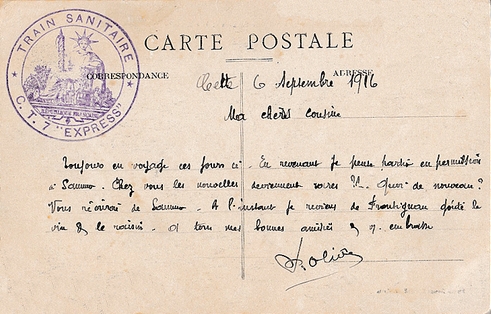 TRAIN SANITAIRE
C. T. 7 "EXPRESS"
CARTE POSTALE
CORRESPONDANCE ADRESSE
Cette 6 Septembre 1916
Ma chère Cousine
Toujours en voyage ces jours ci. En revenant je pense partir en permission
à . Chez vous les nouvelles deviennent rares . Quoi de nouveau?
Vous écrirai de . A l'instant je reviens de Frontignan goûté le
vin & le raisin. A tous mes bonnes amitiés &